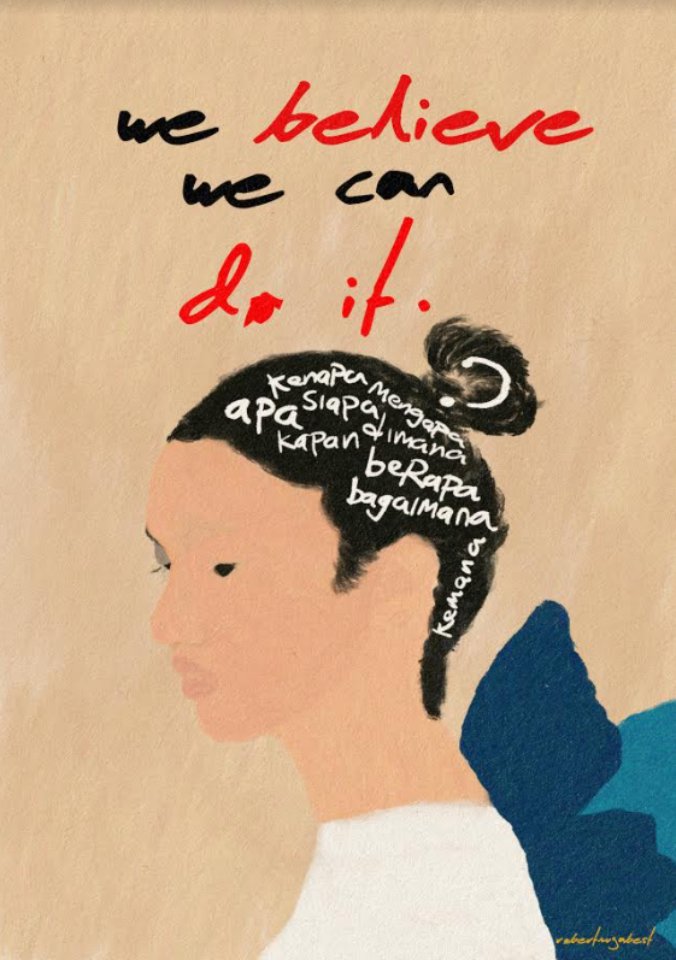 we believe
we can
do it.
kenapa
mengapa
apa
siapa
dimana
kapan
beRapa
bagaimana
kemana
?